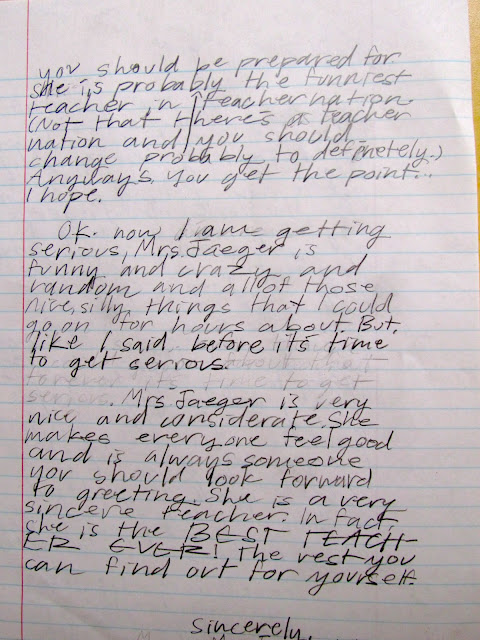 you should be prepared for.
She is probably the funniest
teacher in teachernation.
(Not that there's a teacher
nation and you should
change probably to definetely.)
Anyways. You get the point...
I hope.
Ok. now I am getting
serious, Mrs. Jaeger is
funny and crazy and
random and all of those
nice, silly, things that I could
go on for hours about. But,
like I said before it's time
to get serious.
forever it's time to get
serious. Mrs Jaeger is very
nice and considerate. She
makes everyone feel good
and is always someone
you should look forward
to greeting. She is a very
sincere teacher. In fact,
she is the BEST TEACH-
ER EVER! The rest you
can find out for yourself.
Sincerely,